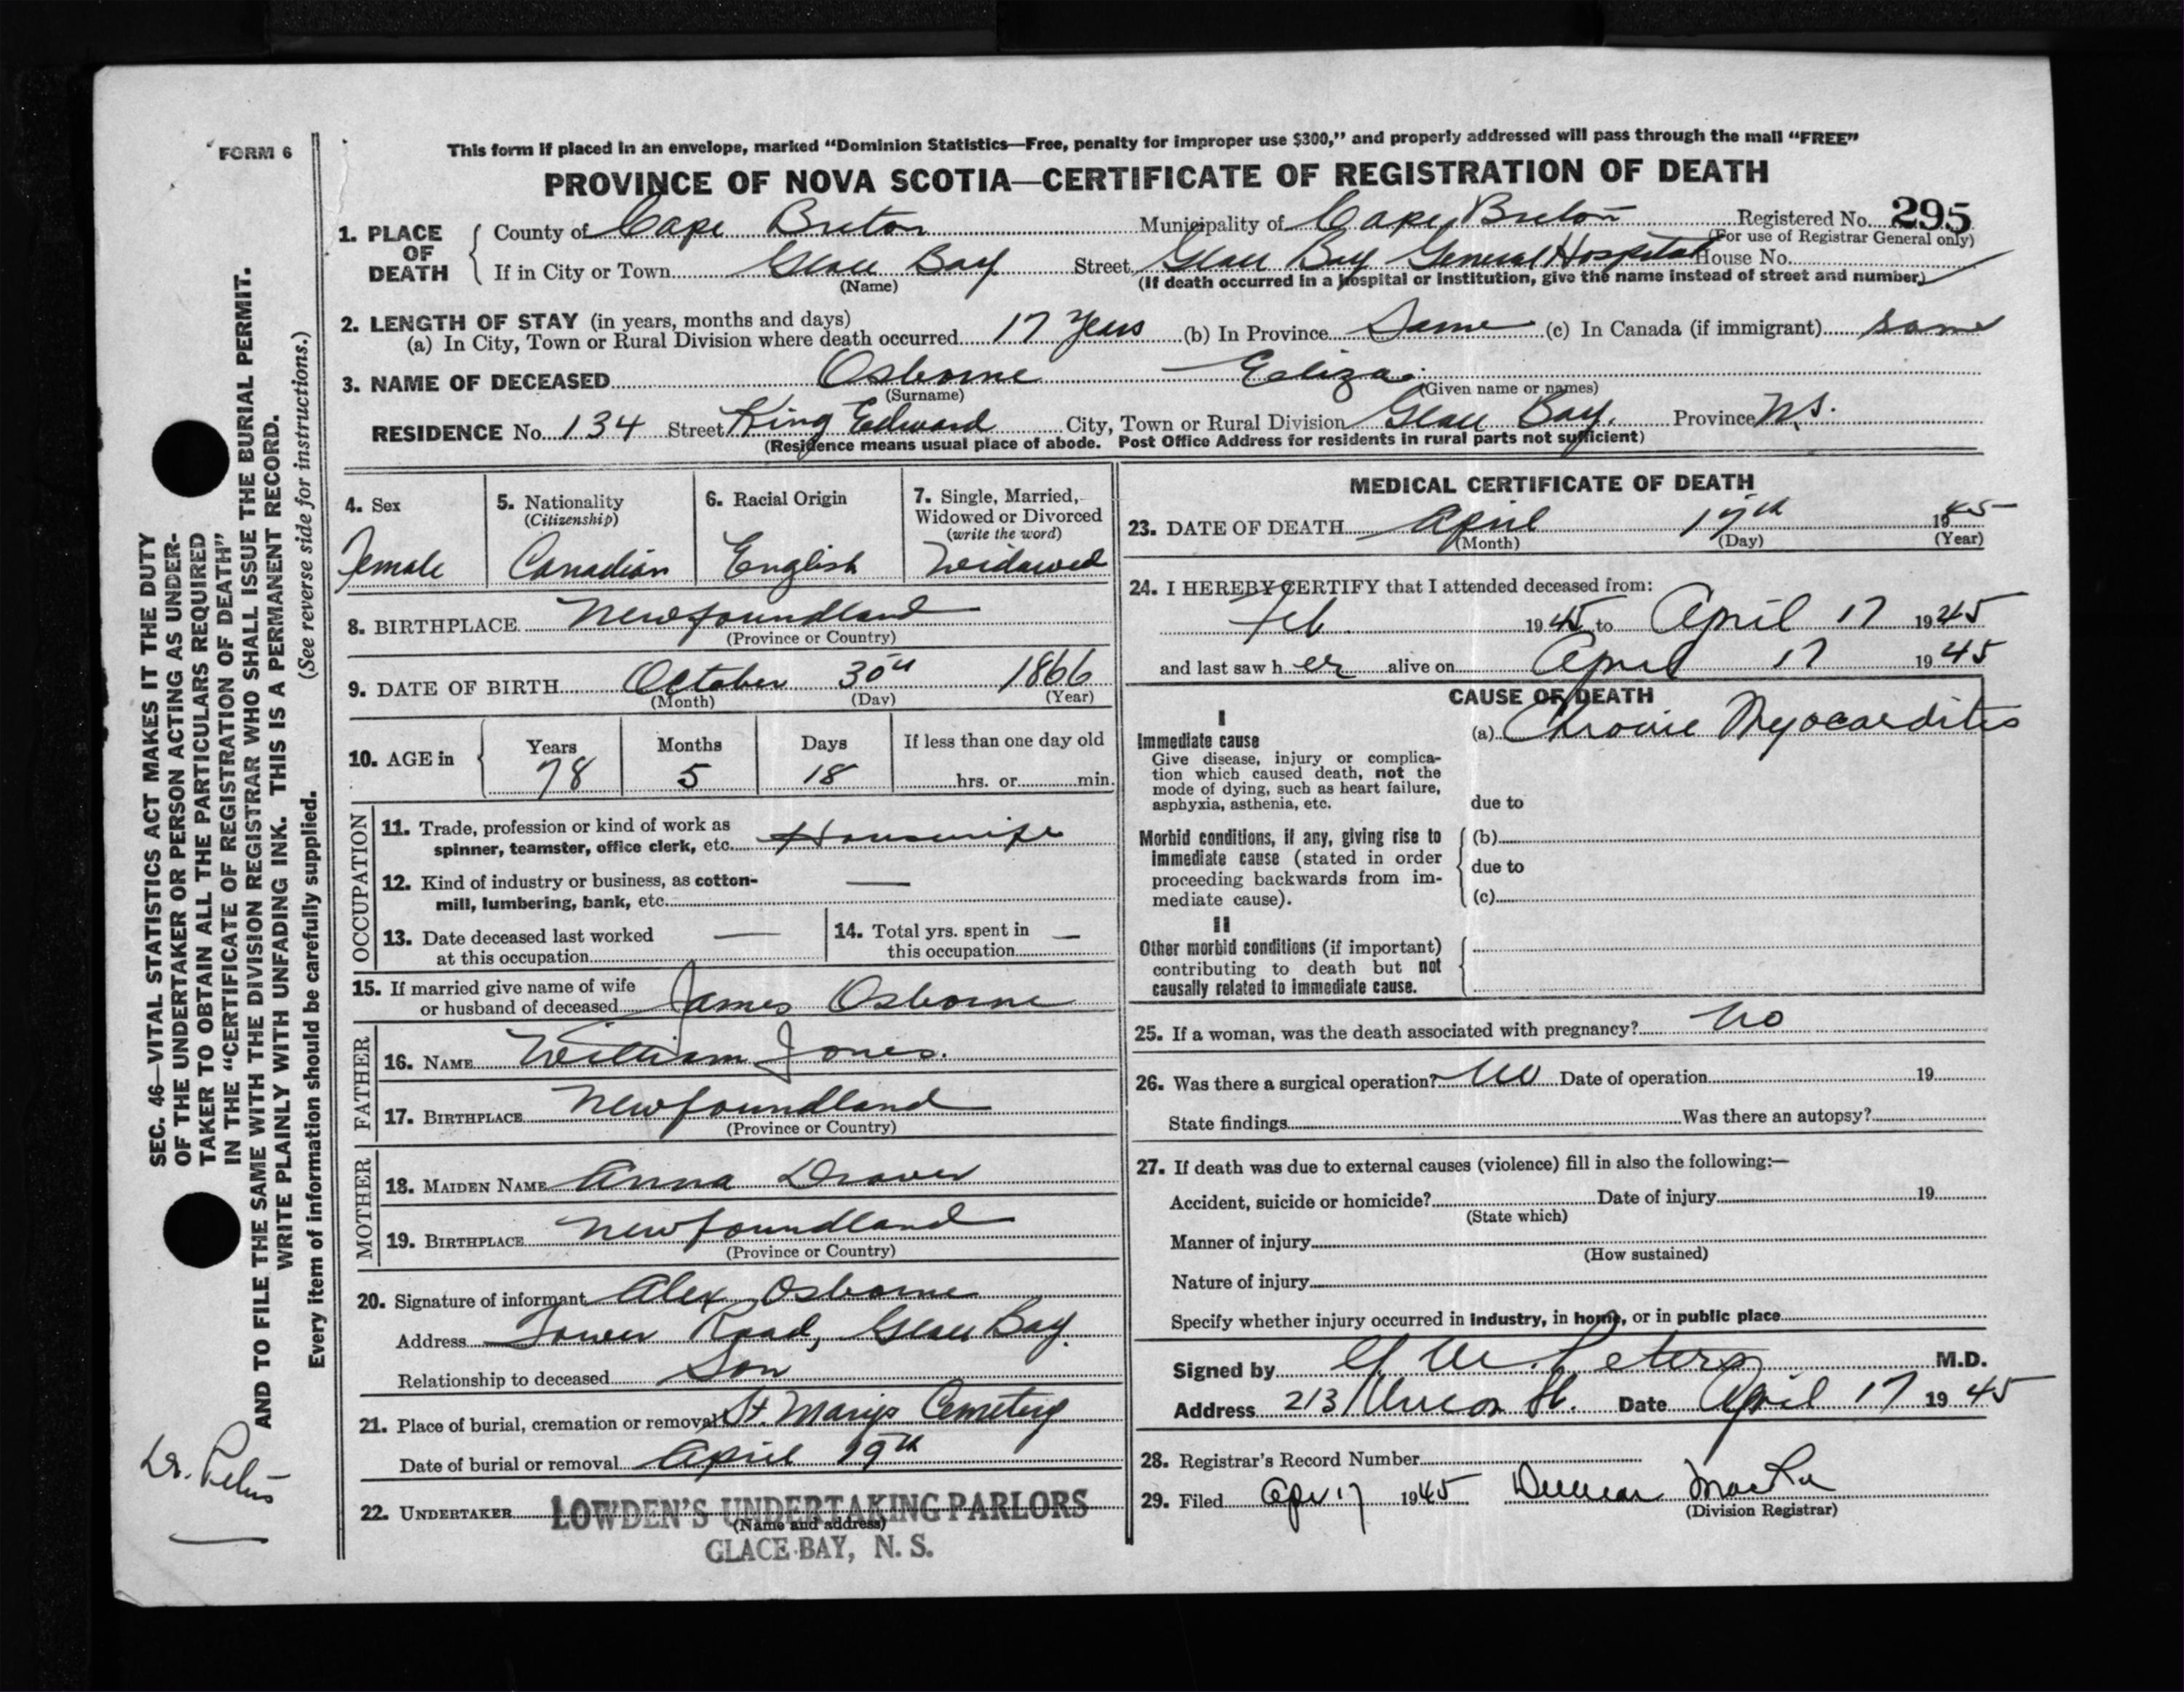 FORM 6
This form if placed in an envelope, marked "Dominion Statistics—Free, penalty for improper use $300," and properly addressed will pass through the mail "FREE"
PROVINCE OF NOVA SCOTIA—CERTIFICATE OF REGISTRATION OF DEATH
1. PLACE OF DEATH County of Cape Breton Municipality of Cape Breton Registered No. 295
(For use of Registrar General only)
If in City or Town Glace Bay Street Glace Bay General Hospital House No.
(Name) (If death occurred in a hospital or institution, give the name instead of street and number)
2. LENGTH OF STAY (in years, months and days)
(a) In City, Town or Rural Division where death occurred 17 Years (b) In Province Same (c) In Canada (if immigrant) same
3. NAME OF DECEASED Osborne Eliza
(Surname) (Given name or names)
RESIDENCE No. 134 Street King Edward City, Town or Rural Division Glace Bay. Province N.S.
(Residence means usual place of abode. Post Office Address for residents in rural parts not sufficient)
4. Sex
Female
5. Nationality
(Citizenship)
Canadian
6. Racial Origin
English
7. Single, Married,
Widowed or Divorced
(write the word)
Widowed
8. BIRTHPLACE Newfoundland
(Province or Country)
9. DATE OF BIRTH October 30th 1866
(Month) (Day) (Year)
10. AGE in Years Months Days If less than one day old
78 5 18 hrs. or min.
OCCUPATION
11. Trade, profession or kind of work as
spinner, teamster, office clerk, etc. Housewife
12. Kind of industry or business, as cotton-
mill, lumbering, bank, etc. —
13. Date deceased last worked
at this occupation —
14. Total yrs. spent in
this occupation —
15. If married give name of wife
or husband of deceased James Osborne
FATHER
16. NAME William Jones.
17. BIRTHPLACE Newfoundland
(Province or Country)
MOTHER
18. MAIDEN NAME Anna Drover
19. BIRTHPLACE Newfoundland
(Province or Country)
20. Signature of informant Alex Osborne
Address Tower Road, Glace Bay.
Relationship to deceased Son
21. Place of burial, cremation or removal St. Marys Cemetery
Date of burial or removal April 19th
22. UNDERTAKER LOWDEN'S UNDERTAKING PARLORS
(Name and address)
GLACE BAY, N. S.
MEDICAL CERTIFICATE OF DEATH
23. DATE OF DEATH April 17th 1945
(Month) (Day) (Year)
24. I HEREBY CERTIFY that I attended deceased from:
Feb 1945 to April 17 1945
and last saw her alive on April 17 1945
CAUSE OF DEATH
I
Immediate cause
Give disease, injury or complica-
tion which caused death, not the
mode of dying, such as heart failure,
asphyxia, asthenia, etc.
(a) Chronic Myocarditis
due to
Morbid conditions, if any, giving rise to
immediate cause (stated in order
proceeding backwards from im-
mediate cause).
(b)
due to
(c)
II
Other morbid conditions (if important)
contributing to death but not
causally related to immediate cause.
25. If a woman, was the death associated with pregnancy? No
26. Was there a surgical operation? No Date of operation 19
State findings Was there an autopsy?
27. If death was due to external causes (violence) fill in also the following:—
Accident, suicide or homicide? Date of injury 19
(State which)
Manner of injury
(How sustained)
Nature of injury
Specify whether injury occurred in industry, in home, or in public place
Signed by Peters M.D.
Address 213 Union St. Date April 17 1945
28. Registrar's Record Number
29. Filed Apr 17 1945 Duncan MacRae
(Division Registrar)
SEC. 46—VITAL STATISTICS ACT MAKES IT THE DUTY
OF THE UNDERTAKER OR PERSON ACTING AS UNDER-
TAKER TO OBTAIN ALL THE PARTICULARS REQUIRED
IN THE "CERTIFICATE OF REGISTRATION OF DEATH"
AND TO FILE THE SAME WITH THE DIVISION REGISTRAR WHO SHALL ISSUE THE BURIAL PERMIT.
WRITE PLAINLY WITH UNFADING INK. THIS IS A PERMANENT RECORD.
Every item of information should be carefully supplied. (See reverse side for instructions.)
Dr. Peters